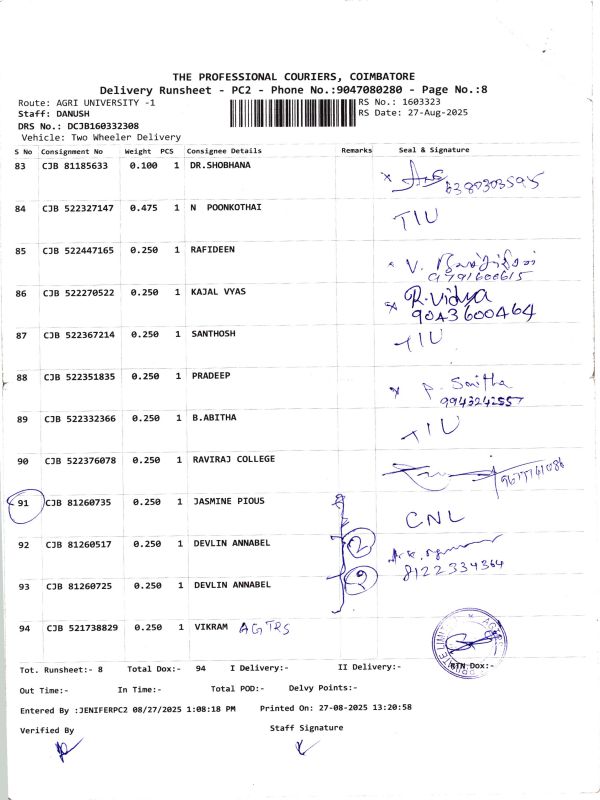 THE PROFESSIONAL COURIERS, COIMBATORE
Delivery Runsheet - PC2 - Phone No.:9047080280 - Page No.:8
Route: AGRI UNIVERSITY -1
RS No.: 1603323
Staff: DANUSH
RS Date: 27-Aug-2025
DRS No.: DCJB160332308
Vehicle: Two Wheeler Delivery
S No Consignment No Weight PCS Consignee Details Remarks Seal & Signature
83 CJB 81185633 0.100 1 DR.SHOBHANA
6380303595
84 CJB 522327147 0.475 1 N POONKOTHAI TIU
85 CJB 522447165 0.250 1 RAFIDEEN V.
9791600615
86 CJB 522270522 0.250 1 KAJAL VYAS R.Vidya
9043600464
87 CJB 522367214 0.250 1 SANTHOSH TIU
88 CJB 522351835 0.250 1 PRADEEP P. Smitha
9943242557
89 CJB 522332366 0.250 1 B.ABITHA TIU
90 CJB 522376078 0.250 1 RAVIRAJ COLLEGE
91 CJB 81260735 0.250 1 JASMINE PIOUS CNL
92 CJB 81260517 0.250 1 DEVLIN ANNABEL 2
8122334364
93 CJB 81260725 0.250 1 DEVLIN ANNABEL 2
94 CJB 521738829 0.250 1 VIKRAM AGTRS
Tot. Runsheet:- 8 Total Dox:- 94 I Delivery:- II Delivery:- RTN Dox:-
Out Time:- In Time:- Total POD:- Delvy Points:-
Entered By :JENIFERPC2 08/27/2025 1:08:18 PM Printed On: 27-08-2025 13:20:58
Verified By Staff Signature